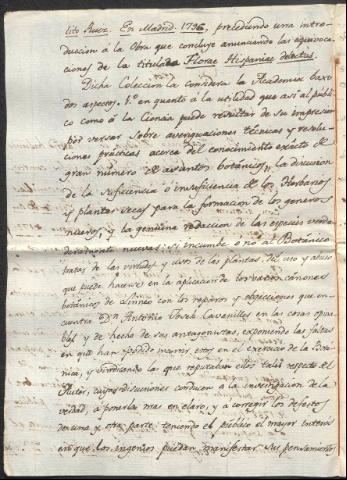 lito Ruiz. En Madrid. 1796, precediendo una intro-
duccion á la Obra que concluye anunciando las equivoca-
ciones de la titulada Florae Hispaniae delectus.
Dicha Coleccion la considera la Academia baxo
dos aspectos. 1.º en quanto á la utilidad que asi al públi-
co como á la Ciencia puede resultar de su impresion
por versar sobre averiguaciones técnicas y resolu-
ciones prácticas acerca del conocimiento exâcto de
gran número de asuntos botánicos, la discusion
de la suficiencia ó insuficiencia de los Herbarios
y plantas secas para la formacion de los generos
nuevos, y la genuina redaccion de las especies verda-
deramente nuevas: si incumbe ó no al Botánico
tratar de las virtudes y usos de las plantas, del uso y abuso
que puede hacerse en la aplicacion de los varios cánones
botánicos de Linneo con los reparos y objecciones que en-
cuentra Dn. Antonio Josef Cavanilles en las cosas opina-
bles y de hecho de sus antagonistas, exponiendo las faltas
en que han podido incurrir estos en el exercicio de la Bota-
nica, y vindicando las que reputaban ellos tales respecto el
Autor, cuyas discusiones conducen á la investigacion de la
verdad, á ponerla mas en claro, y á corregir los defectos
de una y otra parte, teniendo el público el mayor interes
en que los ingenios puedan manifestar sus pensamientos